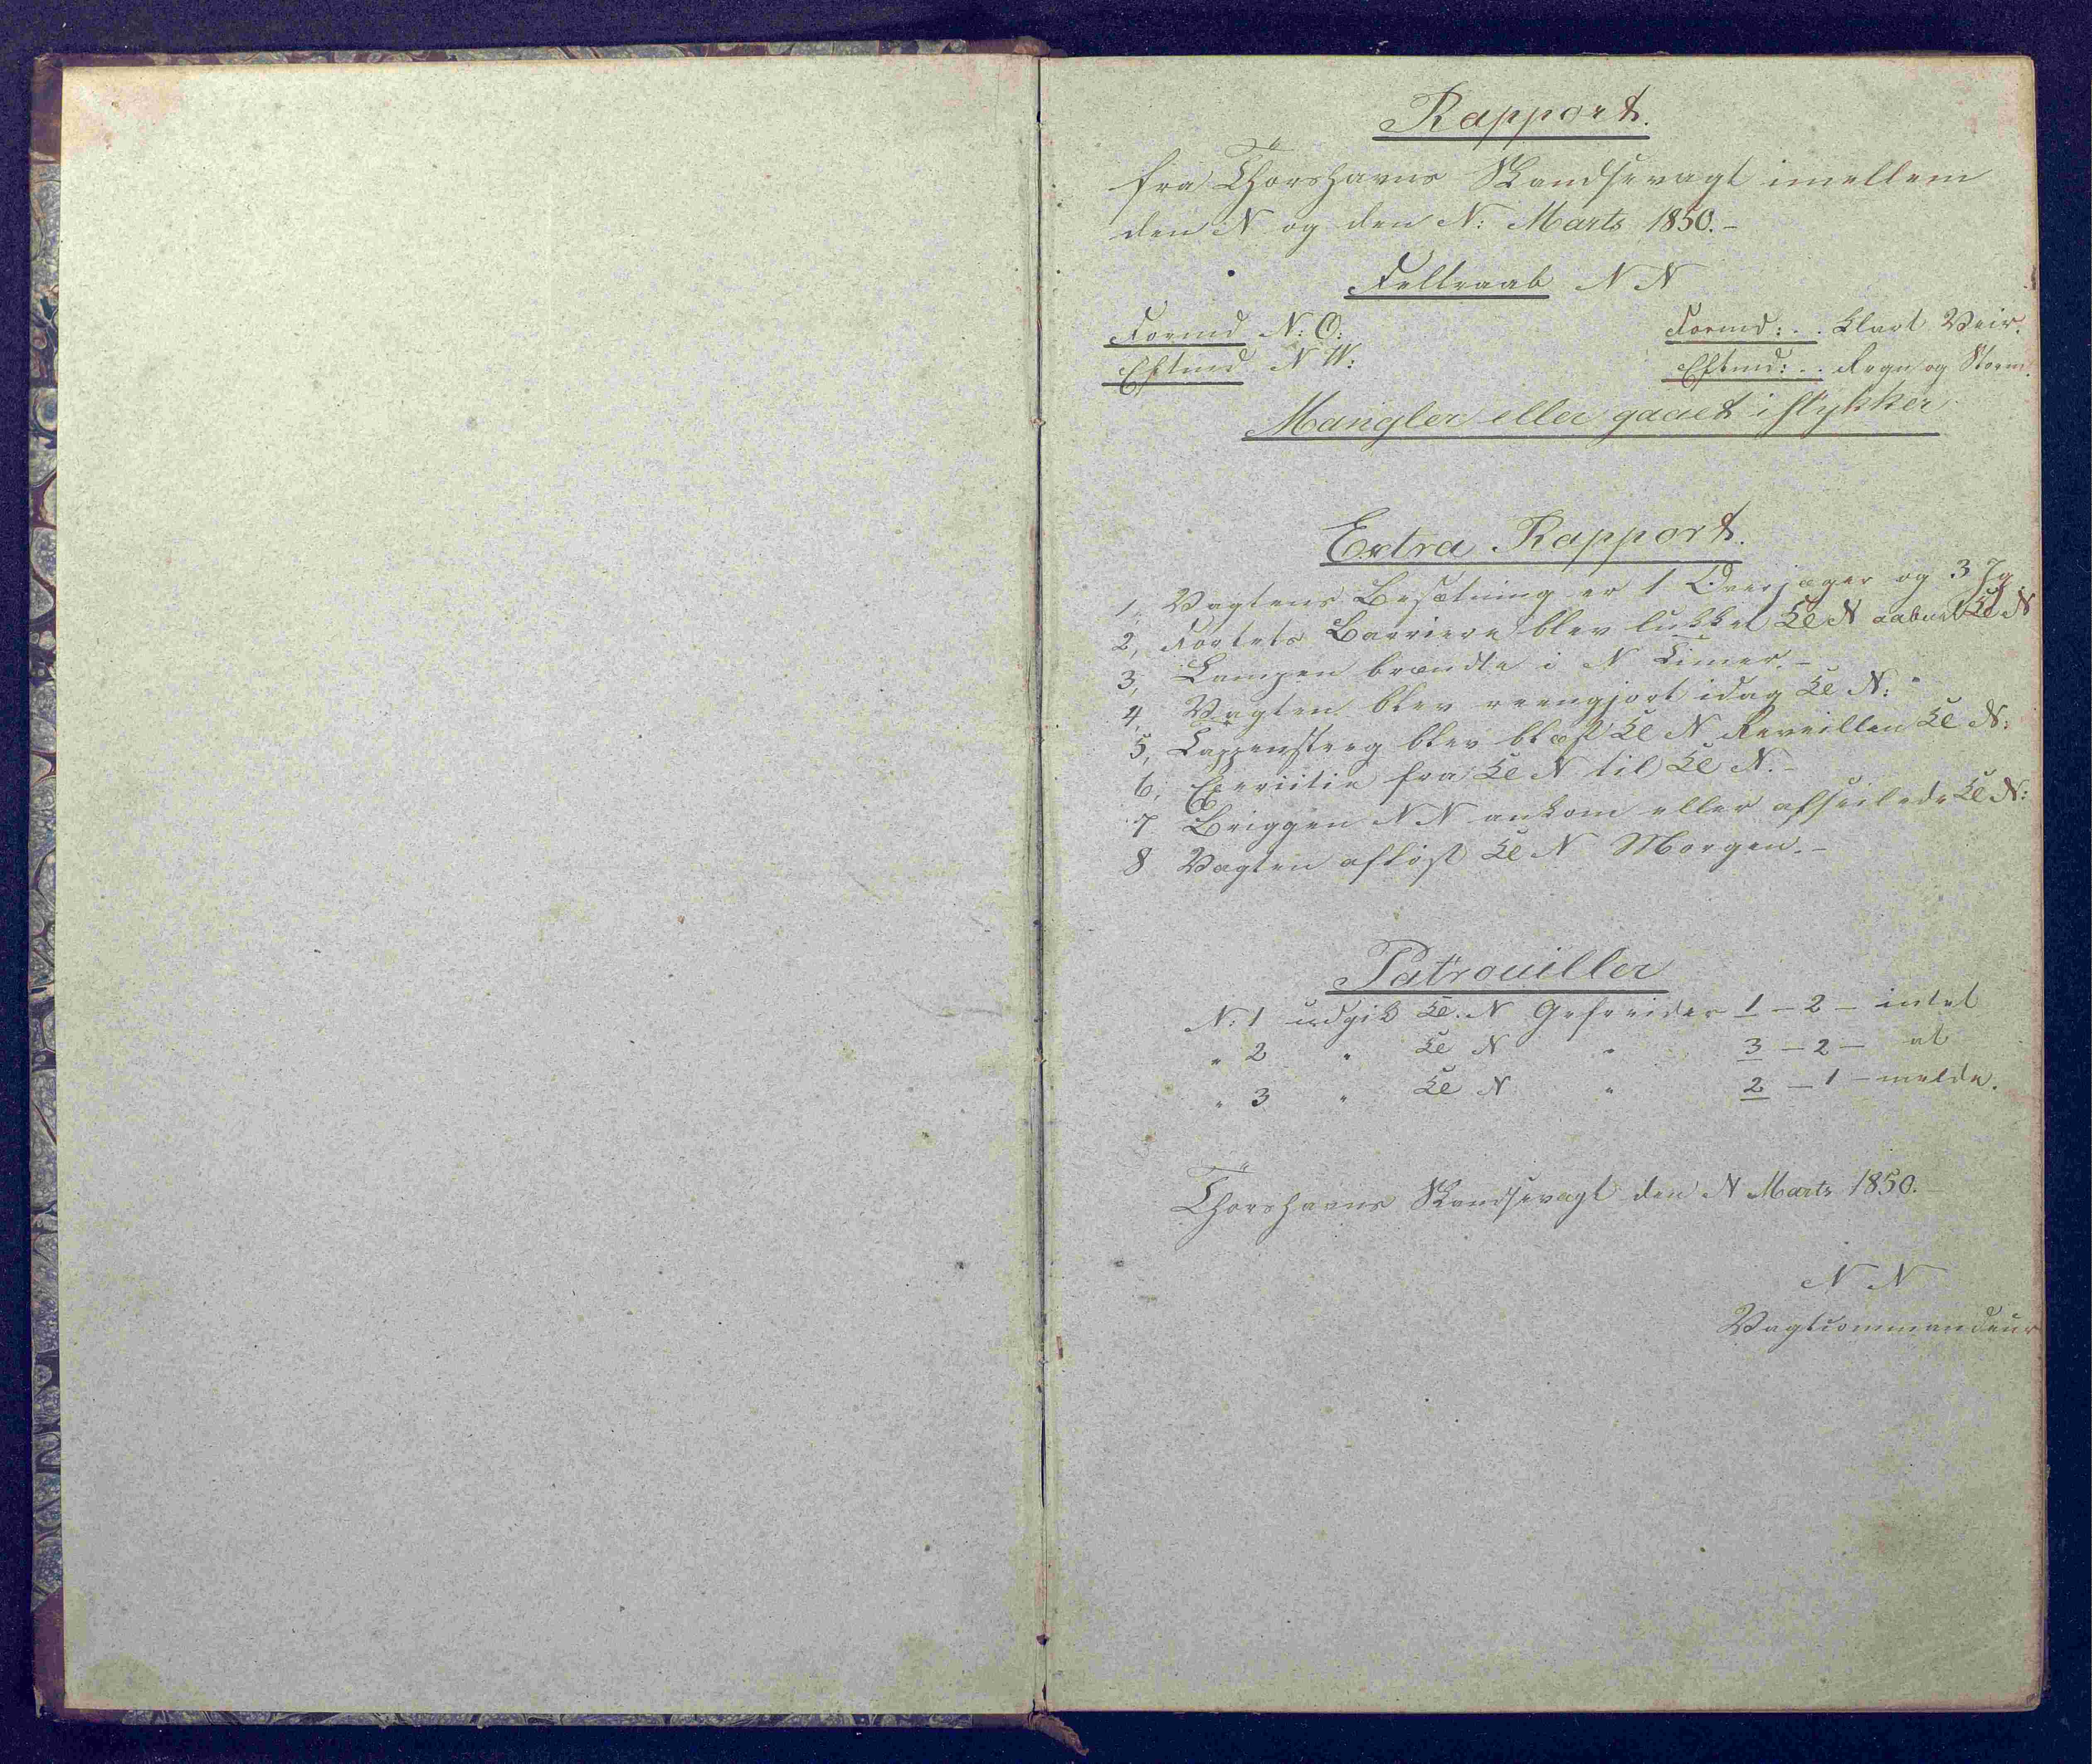 Rapport.
fra Thorshavns Skandsevagt imellem
den N og den N: Marts 1850.-
Feltraab N N
Formd N: O:
Formd: . . Klart Veir.
Eftmd N W:
Eftmd: . . Regn og Storm.
Mangler eller gaaet istykker
Extra Rapport.
1, Vagtens Besætning er 1 Overjæger og 3 Jg
2, Fortets Barriere blev lukket Kl N aabnet Kl N
3, Lampen brændte i N Timer.-
4, Vagten blev reengjort idag Kl N:
5, Tappenstreg blev blæst Kl N Reveillen Kl N:
6, Exercitie fra Kl N til Kl N.-
7 Briggen N N ankom eller afseilede Kl N:
8 Vagten afløst Kl N Morgen.-
Patrouiller
N: 1 udgik Kl. N Gefreider 1 - 2 - intet
" 2 " Kl N " 3 - 2 - at
" 3 " Kl N " 2 - 1 - melde.
Thorshavns Skandsevagt den N Marts 1850.
N N
Vagtcommandeur